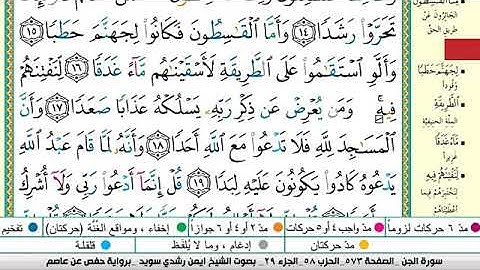 تَحَرَّوْا۟ رَشَدًا ١٤ وَأَمَّا ٱلْقَـٰسِطُونَ فَكَانُوا۟ لِجَهَنَّمَ حَطَبًا ١٥
وَأَلَّوِ ٱسْتَقَـٰمُوا۟ عَلَى ٱلطَّرِيقَةِ لَأَسْقَيْنَـٰهُم مَّآءً غَدَقًا ١٦ لِّنَفْتِنَهُمْ
فِيهِ وَمَن يُعْرِضْ عَن ذِكْرِ رَبِّهِۦ يَسْلُكْهُ عَذَابًا صَعَدًا ١٧ وَأَنَّ
ٱلْمَسَـٰجِدَ لِلَّهِ فَلَا تَدْعُوا۟ مَعَ ٱللَّهِ أَحَدًا ١٨ وَأَنَّهُۥ لَمَّا قَامَ عَبْدُ ٱللَّهِ
يَدْعُوهُ كَادُوا۟ يَكُونُونَ عَلَيْهِ لِبَدًا ١٩ قُلْ إِنَّمَآ أَدْعُوا۟ رَبِّى وَلَآ أُشْرِكُ
الجَائِرُونَ عَنْ
طَرِيقِ الحَقِّ
لِجَهَنَّمَ حَطَبًا
وَقُودًا
الطَّرِيقَةِ
المِلَّةِ الحَنِيفِيَّةِ
مَآءً غَدَقًا
غَزِيرًا
لِنَفْتِنَهُمْ فِيهِ
مدّ ٦ حركات لزوماً مدّ واجب ٤ أو ٥ حركات مدّ ٢ أو ٤ أو ٦ جوازاً إخفاء، ومواقع الغُنَّة (حركتان) تفخيم
مدّ حركتان إدغام، وما لا يُلفَظ قلقلة
سورة الجن _ الصفحة ٥٧٣_ الحزب ٥٨_ الجزء ٢٩_ بصوت الشيخ ايمن رشدي سويد _ برواية حفص عن عاصم